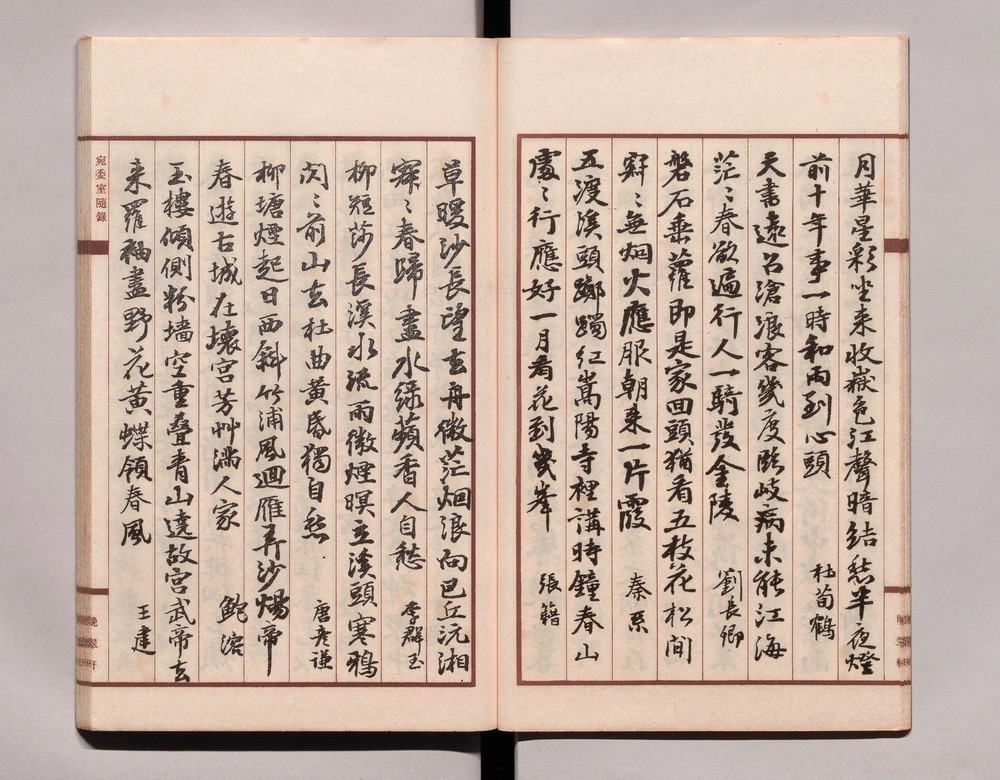 月華星彩坐来收嶽色江聲暗結愁半夜燈
前十年事一時和雨到心頭 杜荀鶴
天書遠召滄浪客幾度臨岐病未能江海
茫〻春欲遍行人一騎發金陵 劉長卿
磐石垂蘿即是家回頭猶看五枝花松間
寂〻無烟火應服朝来一片霞 秦系
五渡溪頭躑躅紅嵩陽寺裡講時鐘春山
處〻行應好一月看花到幾峯 張籍
草暖沙長望去舟微茫烟浪向巴丘沅湘
寂〻春歸盡水綠蘋香人自愁 李群玉
柳短莎長溪水流雨微煙暝立溪頭寒鴉
閃〻前山去杜曲黄昏獨自愁 唐彦謙
柳塘煙起日西斜竹浦風迴雁弄沙煬帝
春遊古城在壞宮芳艸滿人家 鮑溶
玉樓傾側粉墻空重疊青山遶故宮武帝去
来羅袖盡野花黄蝶領春風 王建
宛委室隨錄
晚翠軒